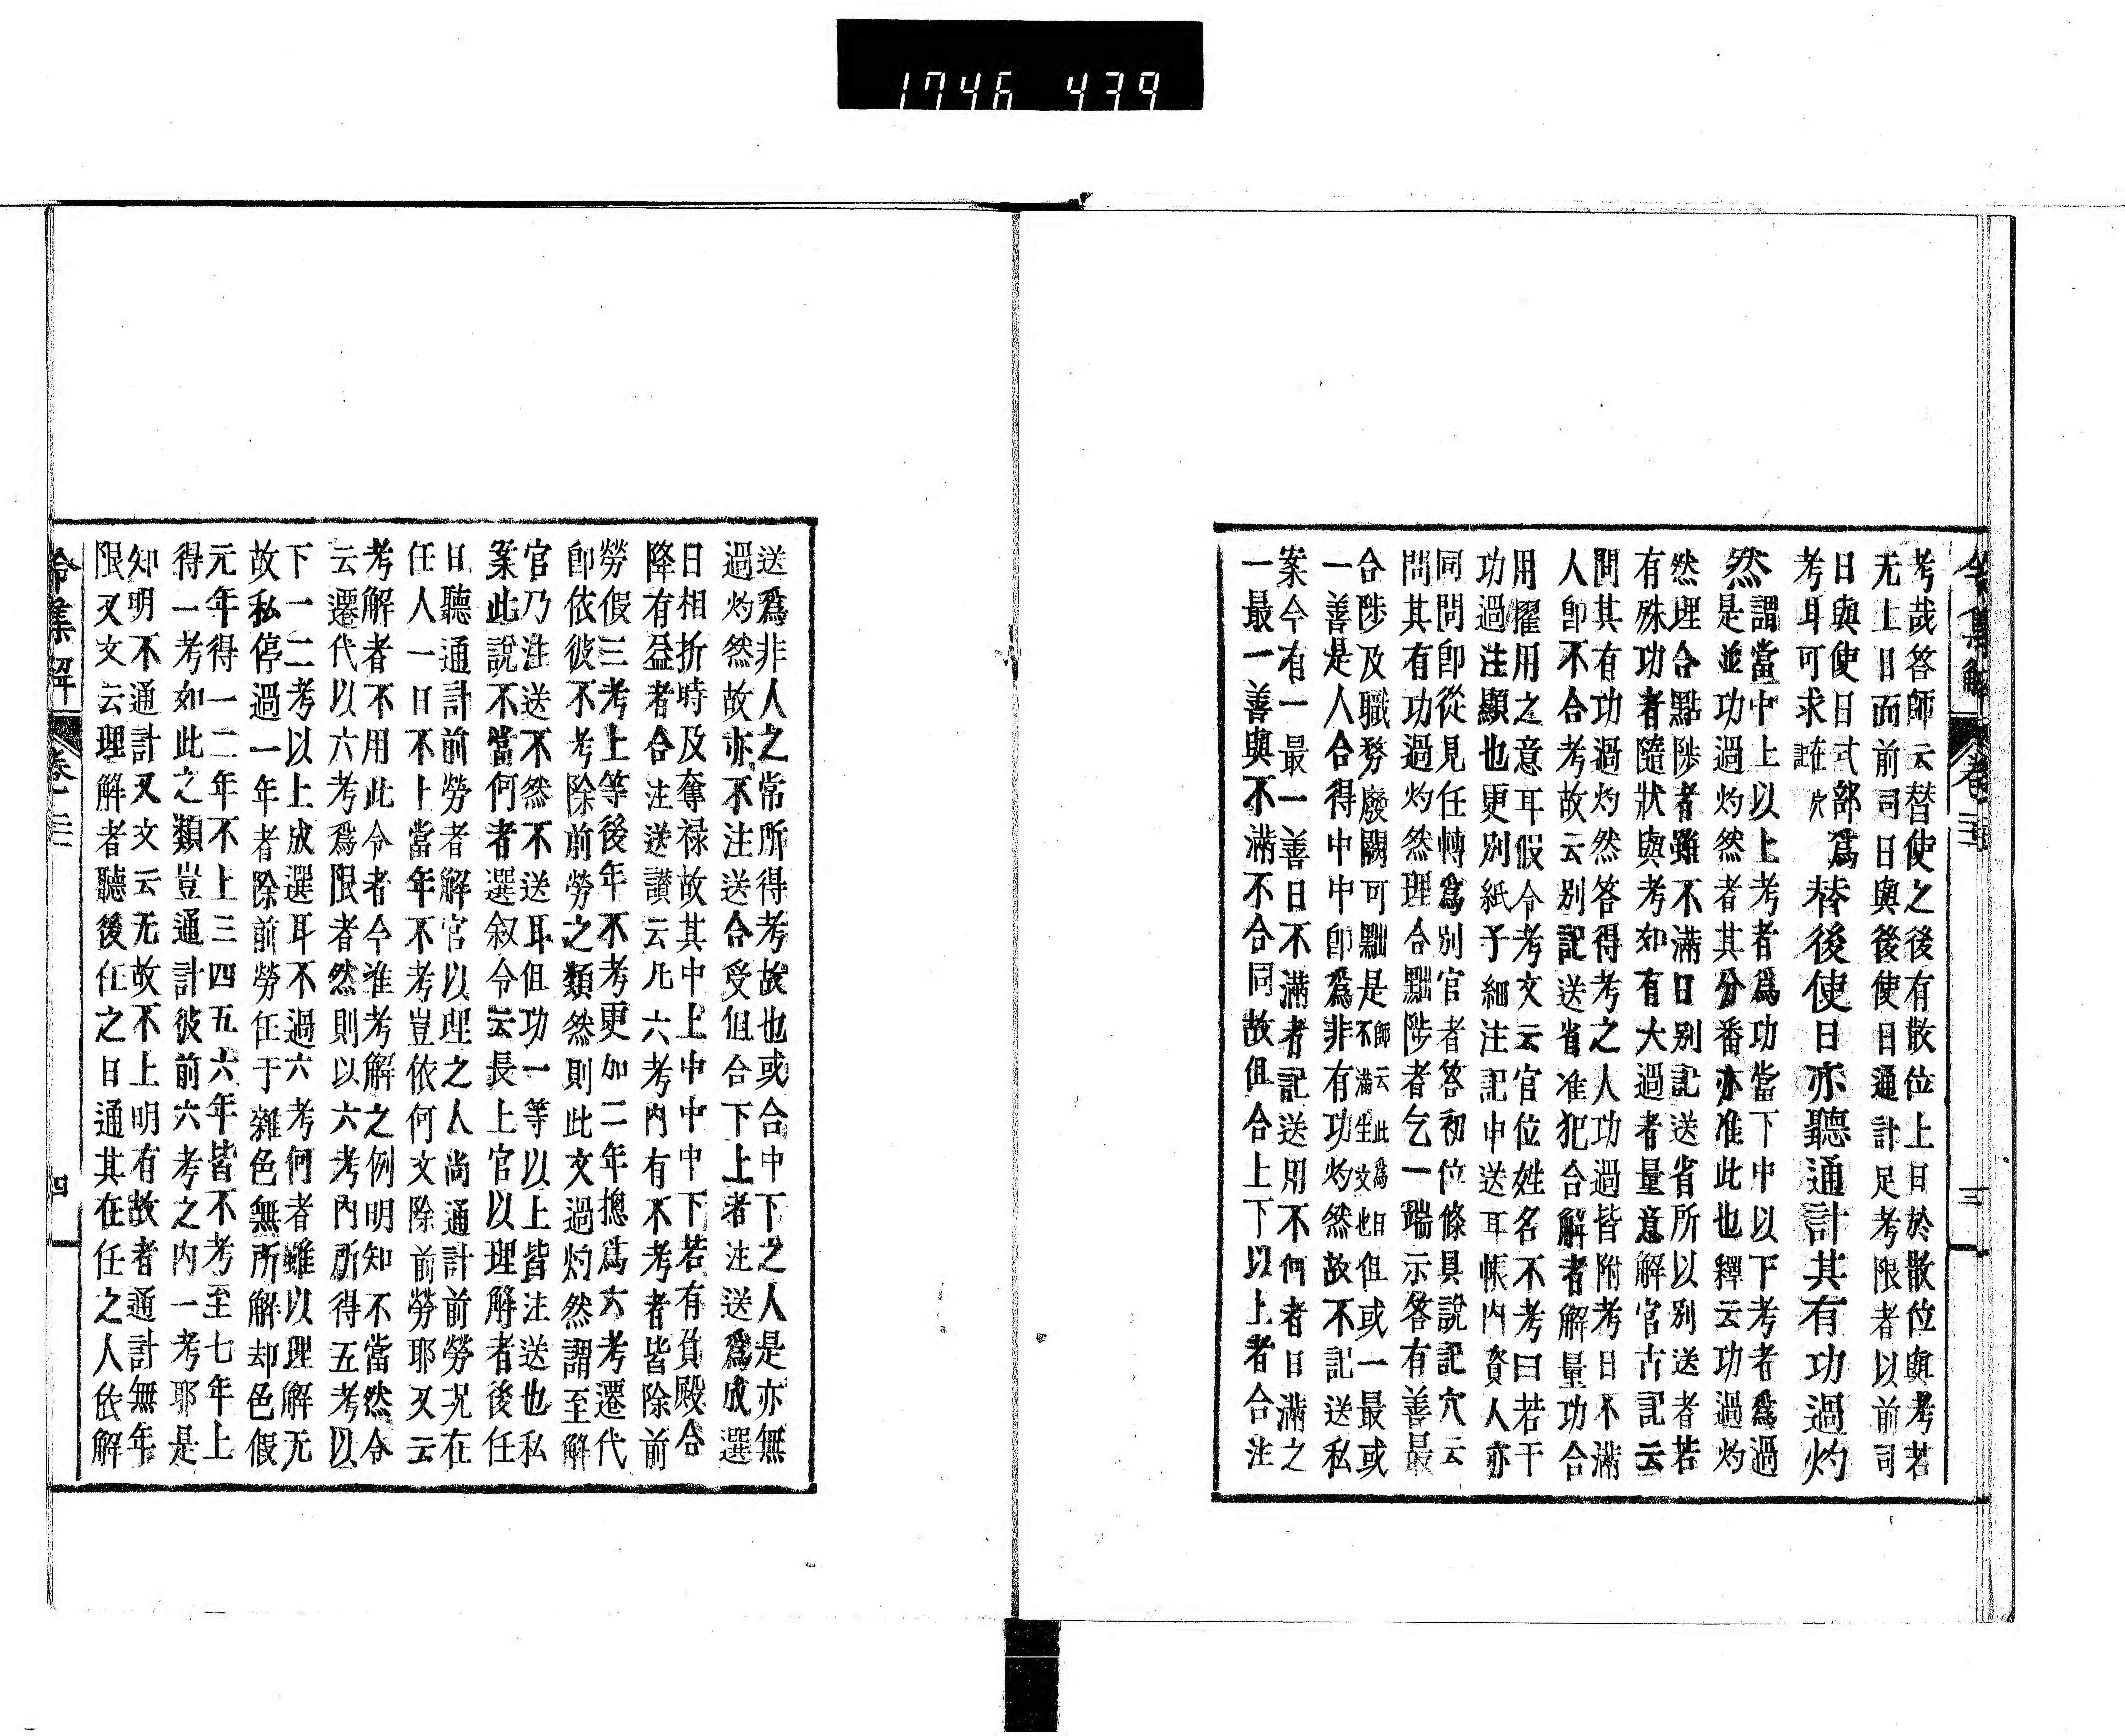 1746 439
令集解 卷二 三
考哉答師云替使之後有散位上日於散位與考若
无上日而前司日與後使日通計足考限者以前司
日與使日式部爲
考耳可求在穴記
替後使日亦聽通計其有功過灼
然
謂當中上以上考者爲功當下中以下考者爲過
是並功過灼然者其分番亦准此也釋云功過灼
然理合點陟者雖不滿日別記送省所以別送者若
有殊功者隨狀與考如有大過者量意解官古記云
問其有功過灼然答得考之人功過皆附考日不滿
人卽不合考故云別記送省准犯合解者解量功合
用擢用之意耳假令考文云官位姓名不考曰若干
功過注顯也更別紙予細注記中送耳帳內資人亦
同問卽從見任轉爲別官者答初位條具說記穴云
問其有功過灼然理合黜陟者乞一端示答有善最
合陟及職務廢闕可黜是師云此爲日不滿生文也但或一最或
一善是人合得中中卽爲非有功灼然故不記送私
案今有一最一善日不滿者記送用不何者日滿之
一最一善與不滿不合同故但合上下以上者合注
送爲非人之常所得考故也或合中下之人是亦無
過灼然故亦不注送合受但合下上者注送爲成選
日相折時及奪祿故其中上中中中下若有負殿合
降有益者合注送讃云凡六考內有不考者皆除前
勞假三考上等後年不考更加二年摠爲六考遷代
卽依彼不考除前勞之類然則此文過灼然謂至解
官乃注送不然不送耳但功一等以上皆注送也私
案此說不當何者選叙令云長上官以理解者後任
日聽通計前勞者解官以理之人尚通計前勞况在
任人一日不上當年不考豈依何文除前勞耶又云
考解者不用此令者今准考解之例明知不當然令
云遷代以六考爲限者然則以六考內所得五考以
下一二考以上成選耳不過六考何者雖以理解无
故私停過一年者除前勞任于雜色無所解却色假
元年得一二年不上三四五六年皆不考至七年上
得一考如此之類豈通計彼前六考之內一考耶是
知明不通計又文云无故不上明有故者通計無年
限又文云理解者聽後任之日通其在任之人依解
令集解 卷二 四